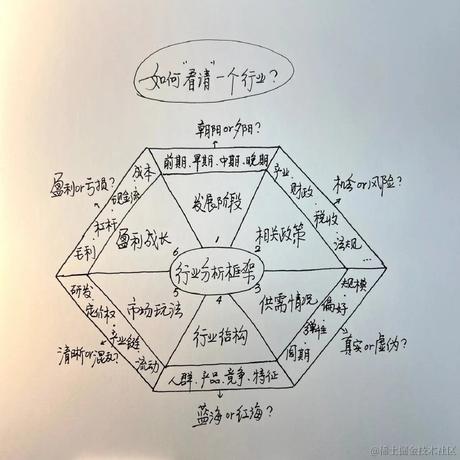 如何"看请"一个行业?
朝阳or夕阳?
前期、早期、中期、晚期
发展阶段
1
机会or风险?
产业
财政
税收
法规...
相关政策
2
真实or虚伪?
规模
偏好
弹性
周期
供需情况
3
行业结构
4
人群、产品、竞争、特征
蓝海or红海?
市场玩法
5
研发
定价权
产业链
流动
清晰or混乱?
盈利成长
6
成本
现金流
杠杆
毛利
盈利or亏损?
行业分析框架
@稀土掘金技术社区